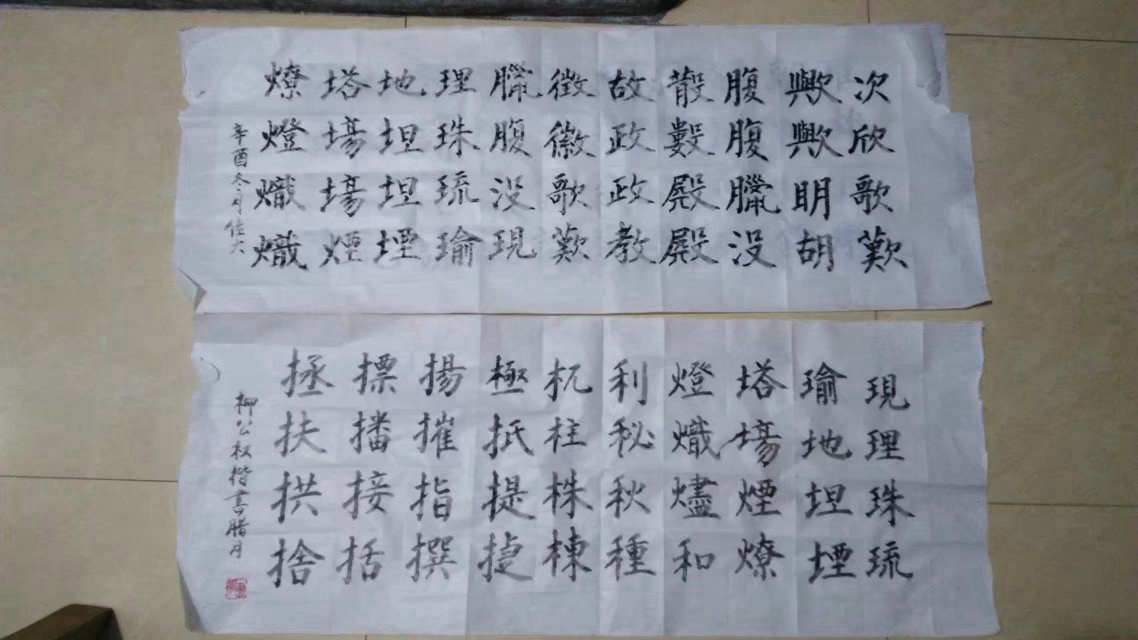 次欣歌歎
歟歟明胡
腹腹臘没
散數殿殿
故政政教
徵徽歌歎
臘腹没現
理珠琉瑜
地坦坦堙
塔場場煙
燎燈熾熾
辛酉冬月佳六
現理珠琉
瑜地坦堙
塔場煙燎
燈熾燼和
利秘秋種
杌柱株棟
極抵提捷
揚摧指撰
摽播接括
拯扶拱捨
柳公权楷書腊月